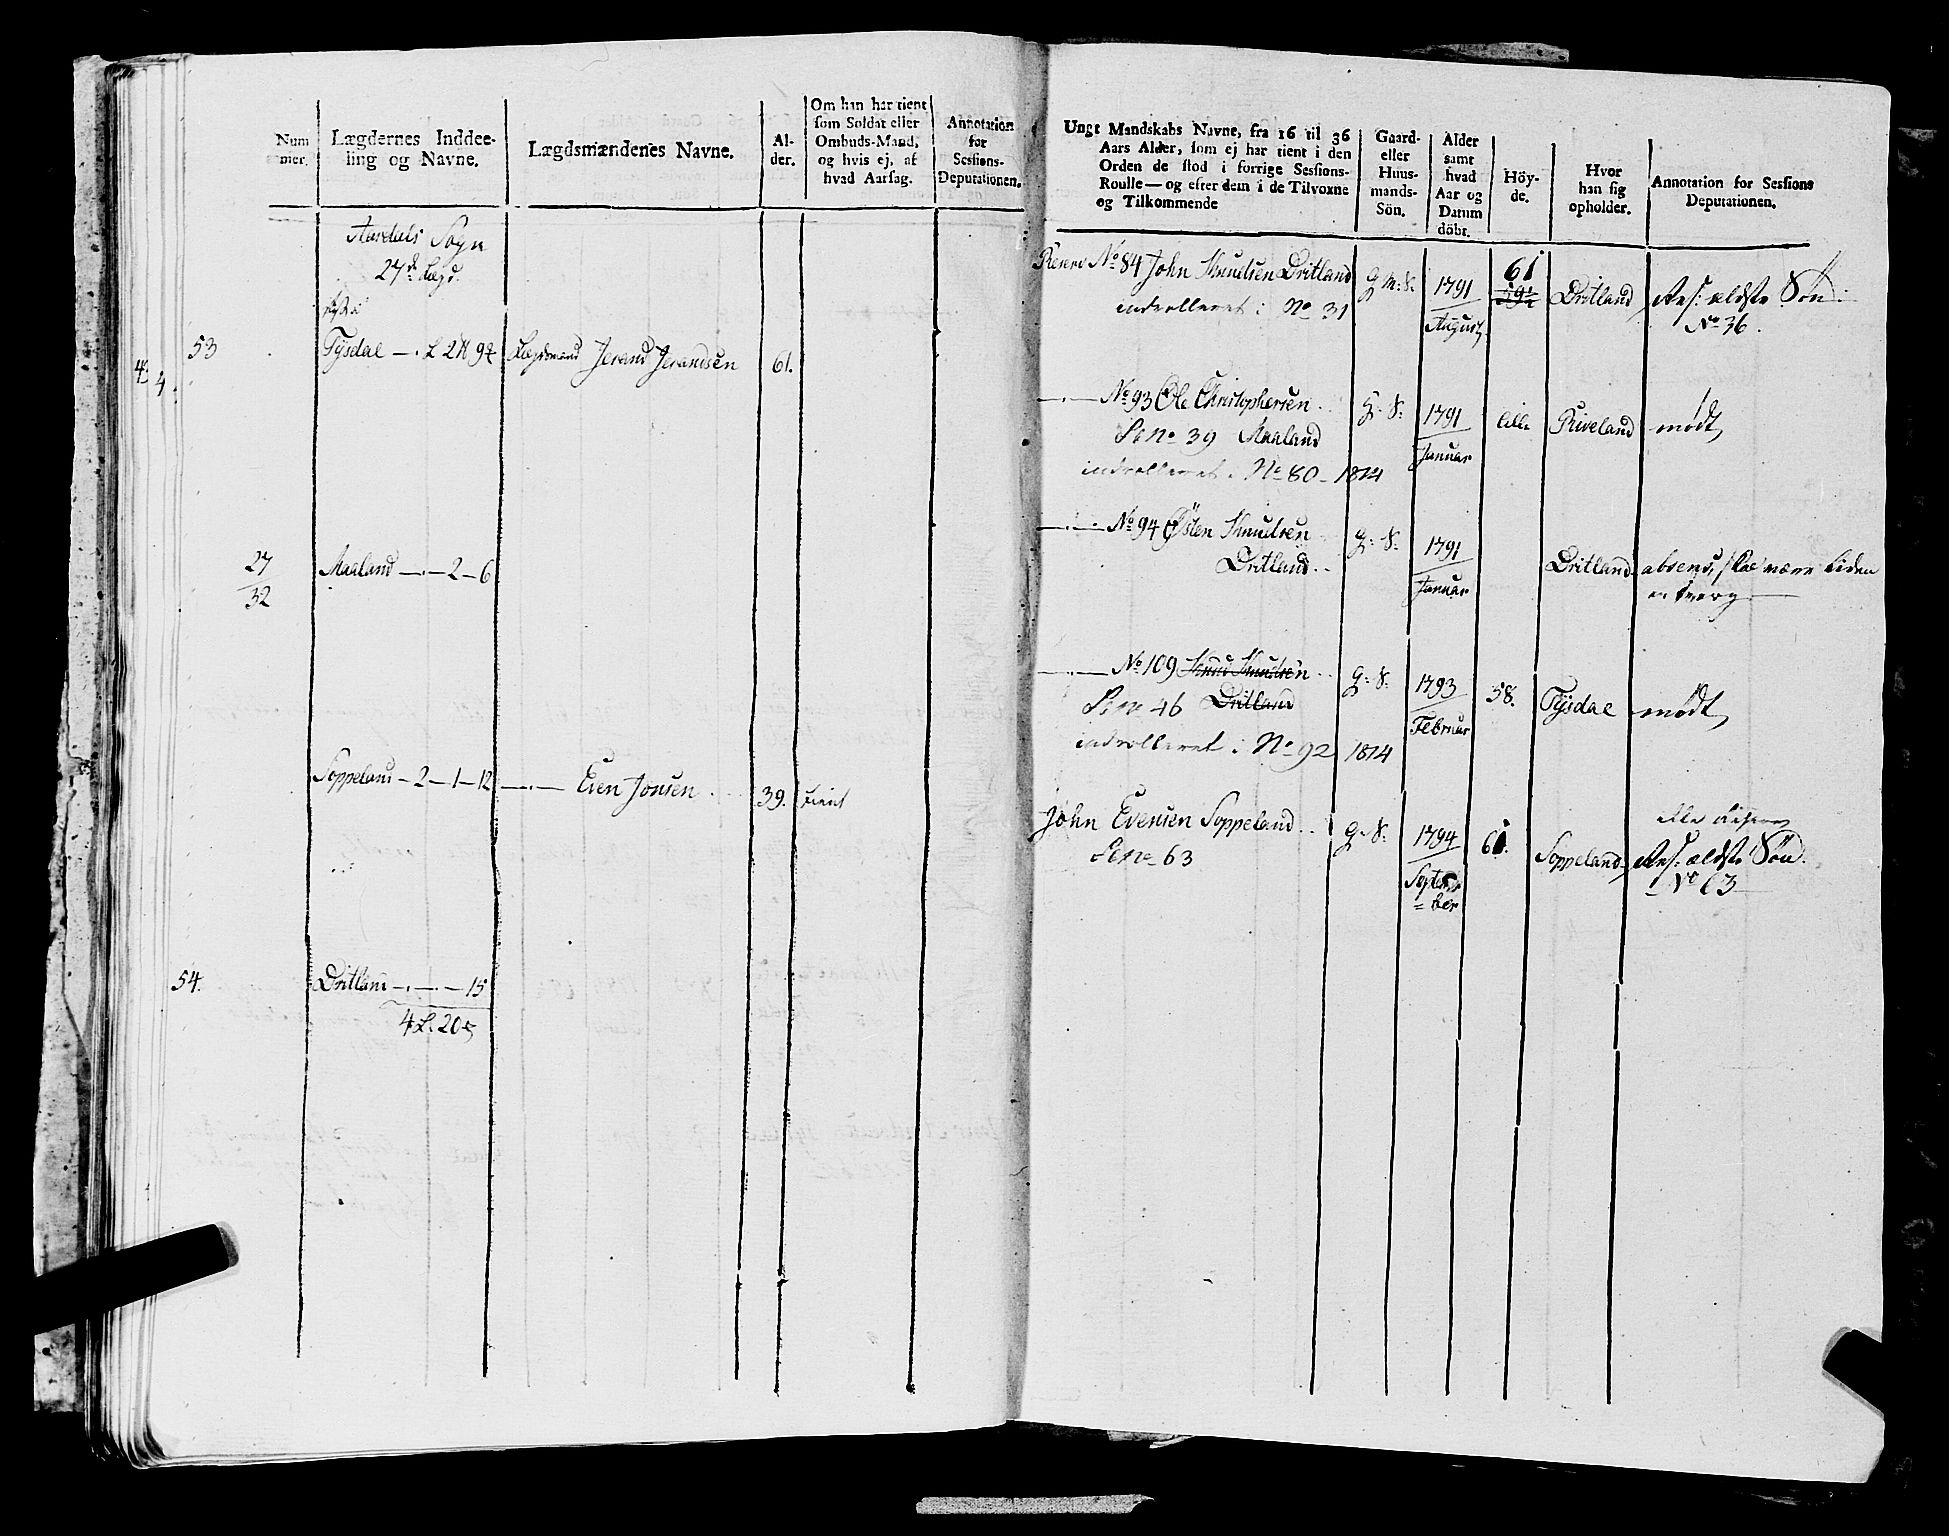 Num
mer.
Lægdernes Inddee-
ling og Navne.
Lægdsmændenes Navne.
Al-
der.
Om han har tient
som Soldat eller
Ombuds-Mand,
og hvis ej, af
hvad Aarsag.
Annotation
for
Sessions-
Deputationen.
Aardals Sogn
27de Lægd.
53
Tysdal — . L 2 9
Lægdsmand Jerand Jerandsen
61.
4
27
32
Maaland — . — 2 — 6
Soppeland — 2 — 1 — 12
— . — Even Jonsen
39.
tient
54.
Dritland — . — . — 15
4 L. 20
Ungt Mandskabs Navne, fra 16 til 36
Aars Alder, som ej har tient i den
Orden de stod i forrige Sessions-
Roulle — og efter dem i de Tilvoxne
og Tilkommende
Gaard-
eller
Huus-
mands-
Sön.
Alder
samt
hvad
Aar og
Datum
döbt.
Höy-
de.
Hvor
han sig
opholder.
Annotation for Sessions
Deputationen.
Reserv No 84 John Knudsen Dritland
indrolleret i No 31
G M: S:
1791
August
61
59½
Dritland
Res: ældste Søn.
No 36.
— . — No 93 Ole Christophersen
No 39 Maaland
indrolleret i No 80 - 1814
G. S:
1791
Januar
lille
Riveland
mødt
— . — No 94 Østen Knudsen
Dritland
G: S:
1791
Januar
Dritland
absens, skal være liden
— . — No 109 Knud Knudsen
46 Dritland
indrolleret i No 92 1814
G: S:
1793
Februar
58.
Tysdal
mødt
John Evensen Soppeland
No 63
G. S:
1794
Septem
= ber
61.
Soppeland
Res: ældste Søn.
No 63